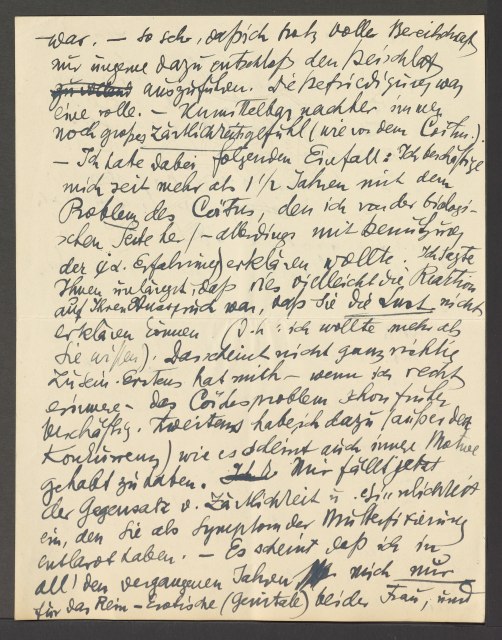 war. – so sehr, daß ich trotz voller Bereitschaft
nur ungerne dazu entschloß den Beischlaf
auszuführen. Die Befriedigung war
eine volle. – Unmittelbar nachher immer
noch großes Zärtlichkeitsgefühl (wie vor dem Coitus.)
– Ich hatte dabei folgenden Einfall: Ich beschäftige
mich seit mehr als 1 1/2 Jahren mit dem
Problem des Coitus, den ich von der biologi-
schen Seite her (– allerdings mit Benützung
der ψα. Erfahrung) erklären wollte. Ich sagte
Ihnen unlängst, daß dies vielleicht die Reaktion
auf Ihren Ausspruch war, daß Sie die Lust nicht
erklären können (d.h: ich wollte mehr als
Sie wissen). Das scheint nicht ganz richtig
zu sein. Erstens hat mich – wenn ich recht
erinnere – das Coitusproblem schon früher
beschäftigt. Zweitens habe ich dazu (außer der
Konkurrenz) wie es scheint auch innere Motive
gehabt zu haben. Nur fällt jetzt
der Gegensatz v. Zärtlichkeit u.
ein, den Sie als Symptom der Mutterfixierung
entlarvt haben. – Es scheint daß ich in
all' den vergangenen Jahren mich nur
für das Rein-Erotische (Genitale) bei der Frau, und